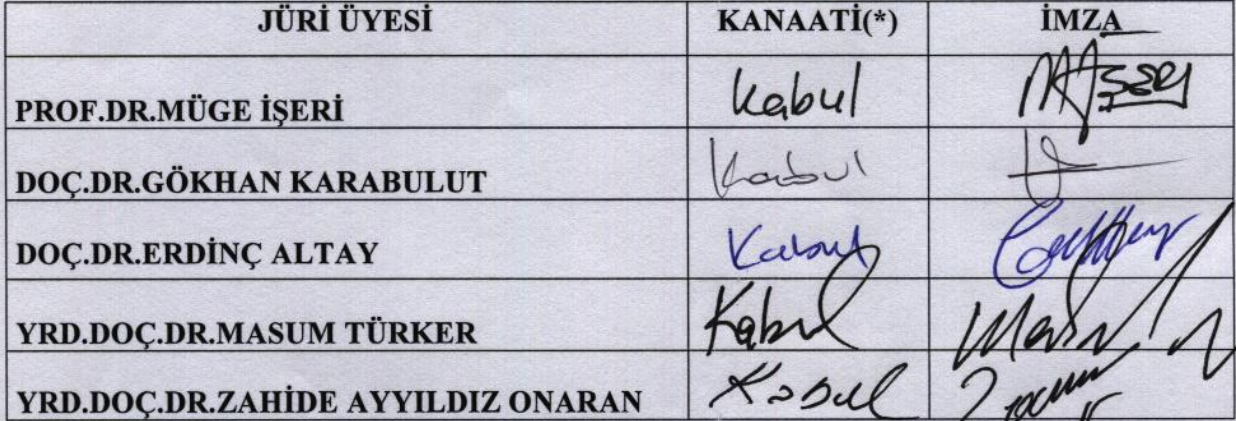 JÜRİ ÜYESİ KANAATİ(*) İMZA
PROF.DR.MÜGE İŞERİ Kabul
DOÇ.DR.GÖKHAN KARABULUT Kabul
DOÇ.DR.ERDİNÇ ALTAY Kabul
YRD.DOÇ.DR.MASUM TÜRKER Kabul
YRD.DOÇ.DR.ZAHİDE AYYILDIZ ONARAN Kabul